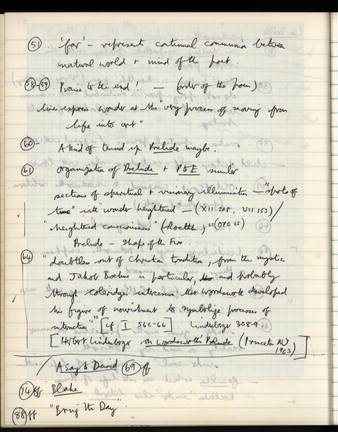 (51) 'for' - represent continual communion between
natural world + mind of the poet.
(58-59) Praise to the end! - (order of the poem)
live express words at the "very process of moving from
life into art"
(60- A kind of Prelude maybe.
(61) organization of Prelude + PTE similar
sections of spiritual + visionary illumination - "spots of
time" with words heightened - (XII 208, VII 153)/
heightened consciousness" (Roethke) "(OTP 12)
Prelude - shape of the
(64) "doubtless out of Christian tradition, from the mystic
and Jakob Boehme in particular, and probably
through Coleridge's intercession that Wordsworth developed
his figure of nourishment to symbolize processes of
interaction" [cf I 562-66] Lindenberger 308-9.
[Herbert Lindenberger On Wordsworth's Prelude (Princeton NJ
1963)]
/ Asay & David (69)ff
(74)ff Blake
(88)ff "Bring the Day"